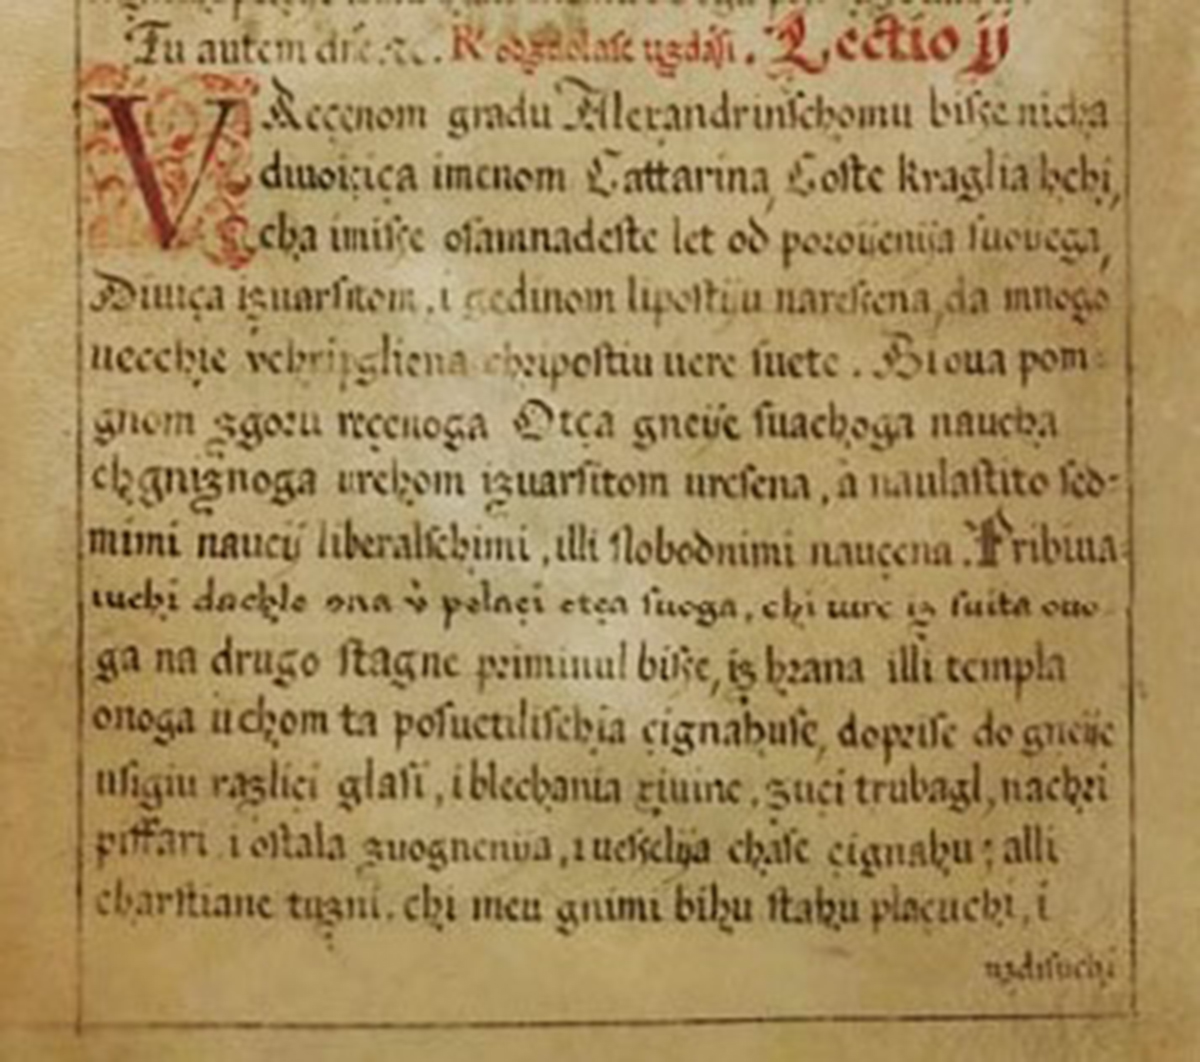 Tu autem dne. &c. R Lectio ij
V Reçenom gradu Alexandrinschomu bisse nicha
diuoiçiça imenom Cattarina, Coste kraglia hchi,
cha imisse osamnadeste let od poroijenija suouega,
Diuiça izuarsitom, i gedinom lipostiju naressena, da mnogo
uecchie chriposti u uere suete. Stoua pom=
gnom zgoru reçenoga Otça gneije suachoga naucha
chgnignoga urchom izuarsitom uresena, à naulastito sed=
mimi naucij liberalschimi, illi slobodnimi nauçena. Pribiua=
iuchi dachle ona v polaçi otça suoga, chi ure iz suita ouo
ga na drugo stagne priminul bisse, iz hrana illi templa
onoga u chom ta posuetilischia çignahuse, doprise do gneije
usigiu razlici glasi, i blechania xiuine, zuçi trubagl, nachri
piffari i ostala zuognenija, i uesselija chase çignahu; alli
charstiane tuzni, chi meu gnimi bihu stahu plaçuchi, i
uzdisuchi